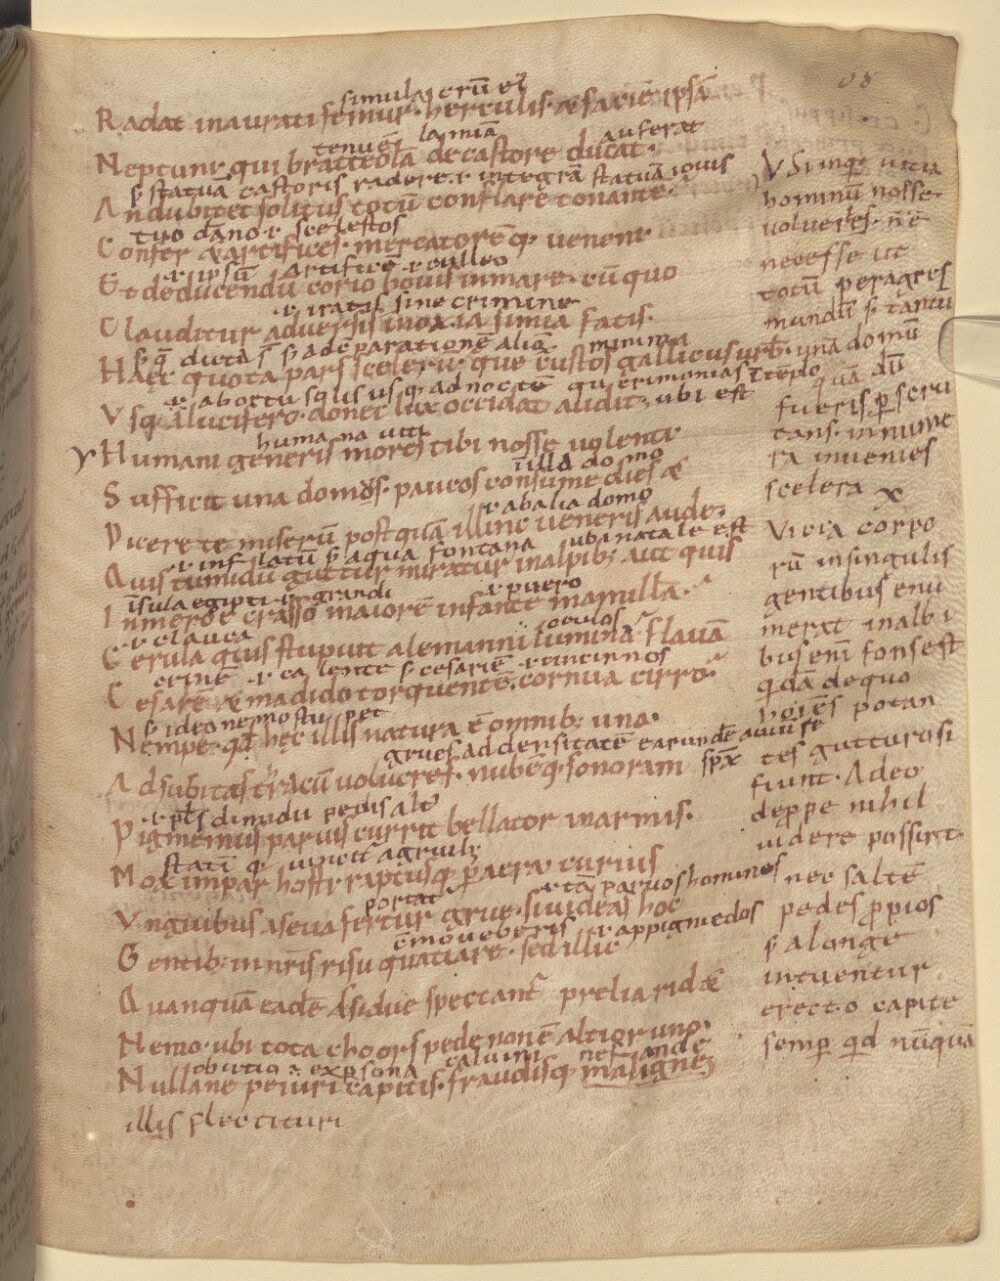 simulacrũ ei
Radat inaurati femur · herculis · & faciẽ ipsã
tenuẽ laminã auferat
Neptuni · qui bratteolã de castore ducat ·
statuã castoris radere · integrã statuã iouis
An dubitet solitus totũ conflare tonantẽ ·
tuo dãno scelestos
Confer & artifices · mercatorẽq; ueneni
ipsũ artificẽ culleo
Et deducendũ corio bouis in mare · cũ quo
iratis sine crimine
Clauditur aduersis innoxia simia fatis ·
dicta adẽparationẽ alia minima
Haec quota pars scelerũ · que custos gallicus urb̃ ·
Vsq; a lucifero · donec lux occidat audit ; ubi est
humana uitia
Humani generis mores tibi nosse uolenti
ĩ illa domo
Sufficit una domus · paucos consume dies &
ab alia domo
Dicere te miserũ postquã illinc ueneris aude ·
inflatũ aqua fontana ubi natale est
Quis tumidũ guttur miratur in alpib; aut quis
ĩsula egipti grandi puero
In meroe crasso maiorẽ infante mamillã ·
glauca oculos
Cerula quis stuput alemanni lumina · flauã
crinẽ cincinnos
Cesarẽ & madido torquentẽ · cornua cirro ·
Nempe · qđ hęc illis natura ẽ omnib; una ·
grues ad densitatẽ earundẽ auiũ
Ad subitas tracũ volucres · nubẽq; sonoram
Pigmeius paruis currit bellator in armis ·
statĩ
Mox impar hosti raptusq; p aera curuis
portat tã paruos homines
Vnguibus a seua fertur grue · si uideas hoc
cõmoueberis ap pigmedos
Gentib; in nr̃is risu quatiare · sed illic
Quanquã eadẽ assidue spectant̃ prelia rid&
Nemo · ubi tota choors pede non ẽ altior uno ·
calvini nefande
Nullane periuri capitis · fraudisq; maligne
illis flectituri
Vsi inq; uitia
hominũ nosse
uolueris · nẽ
necesse ut
totũ peragres
mundũ
una domũ
quã dũ
fueris pscru
tans · innume
ra inuenies
scelera
Vicia corpo
rũ in singulis
gentibus enu
merat in albi
bus enĩ fons est
qdã de quo
hoĩes potan
tes gutturosi
fiunt · Adeo
deppe nihil
uidere possint
nec saltẽ
pedes pprios
a longe
intuentur
erecto capite
semp qđ nũquã